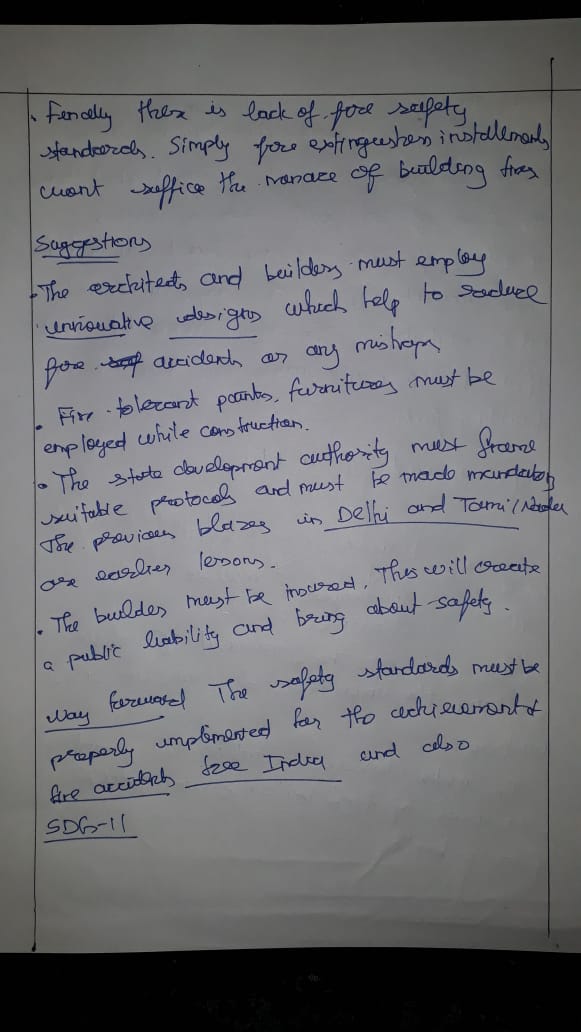 • Finally there is lack of fire saefety
standards. Simply fire extinguishers installments
wont suffice the manace of building fires
Suggestions
• The architects and builders must employ
innovative designs which help to reduce
fire accidents or any mishaps
• Fire-tolerant paints, furnitures must be
employed while construction.
• The state development authority must frame
suitable protocols and must be made mandatory
The previous blazes in Delhi and Tamil Nadu
are earlier lessons.
• The builder must be insured. This will create
a public liability and bring about safety.
Way forward The safety standards must be
properly implimented for the achievement of
fire accidents free India and also
SDG-11